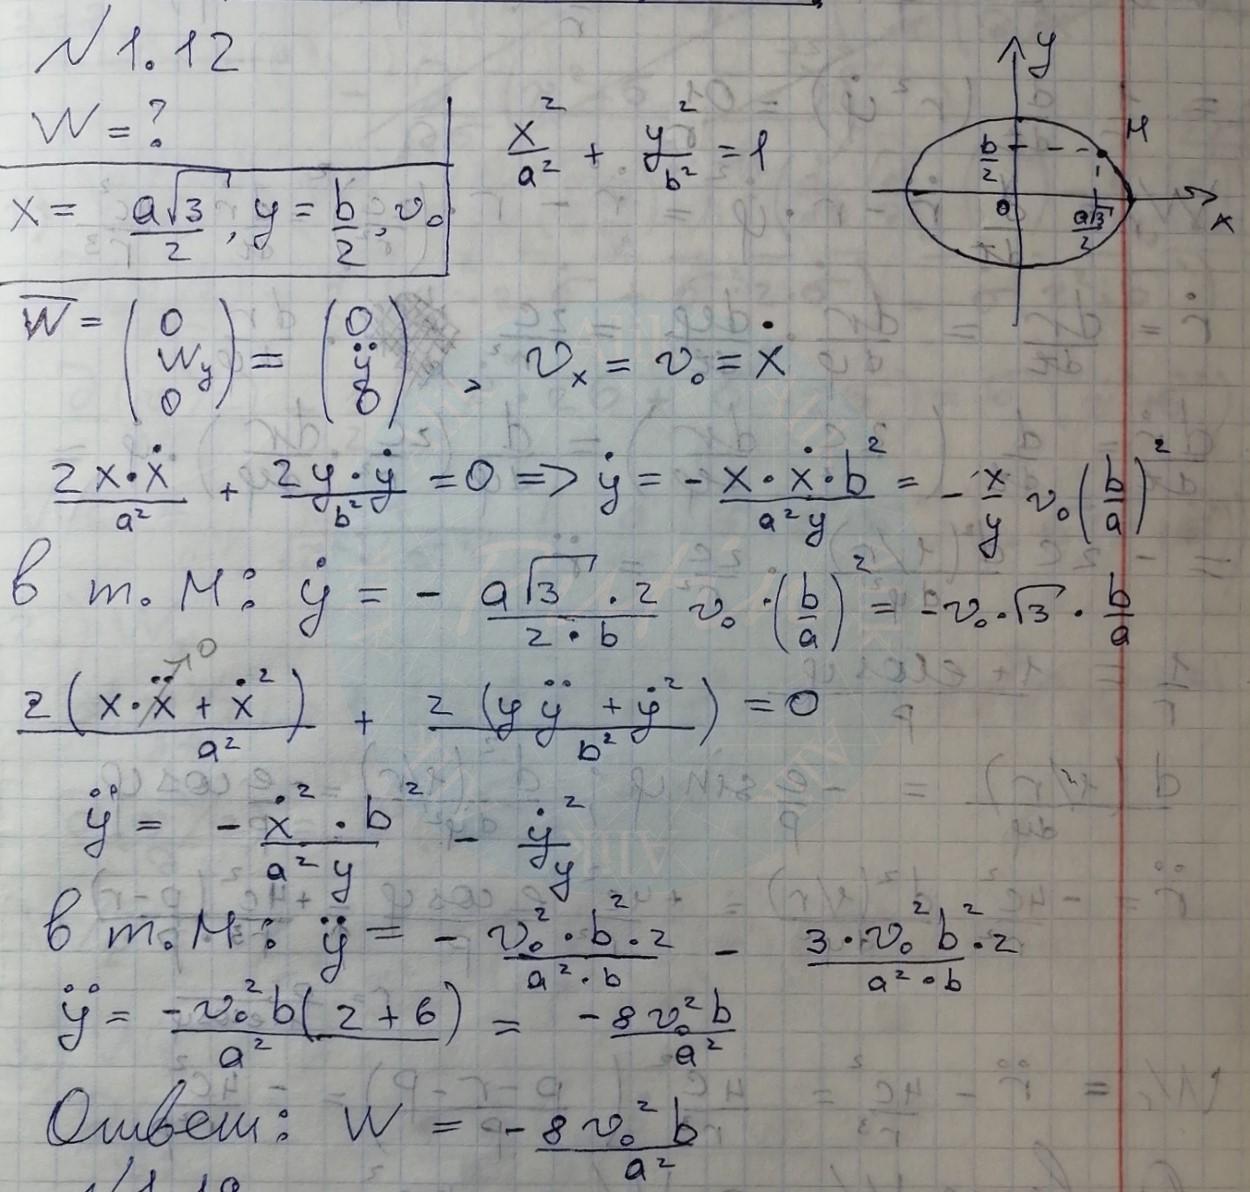 №1.12
W = ?
x = a√3/2, y = b/2, v₀
x²/a² + y²/b² = 1
y
M
b/2
0
a√3/2
x
W̅ = (0 W_y 0) = (0 ÿ 0), v_x = v₀ = ẋ
2x·ẋ/a² + 2y·ẏ/b² = 0 => ẏ = - x·ẋ·b²/a²y = - x/y v₀ (b/a)²
в т. М: ẏ = - a√3·2/2·b v₀·(b/a)² = -v₀·√3·b/a
2(x·ẍ + ẋ²)/a² + 2(yÿ + ẏ²)/b² = 0
0
ÿ = - ẋ²·b²/a²y - ẏ²/y
в т. М: ÿ = - v₀²·b²·2/a²·b - 3·v₀²b²·2/a²·b
ÿ = -v₀²b(2+6)/a² = -8v₀²b/a²
Ответ: W = -8v₀²b/a²